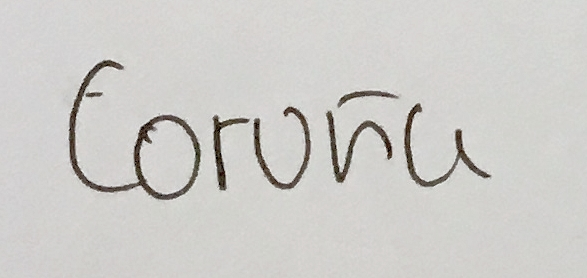 Coruña